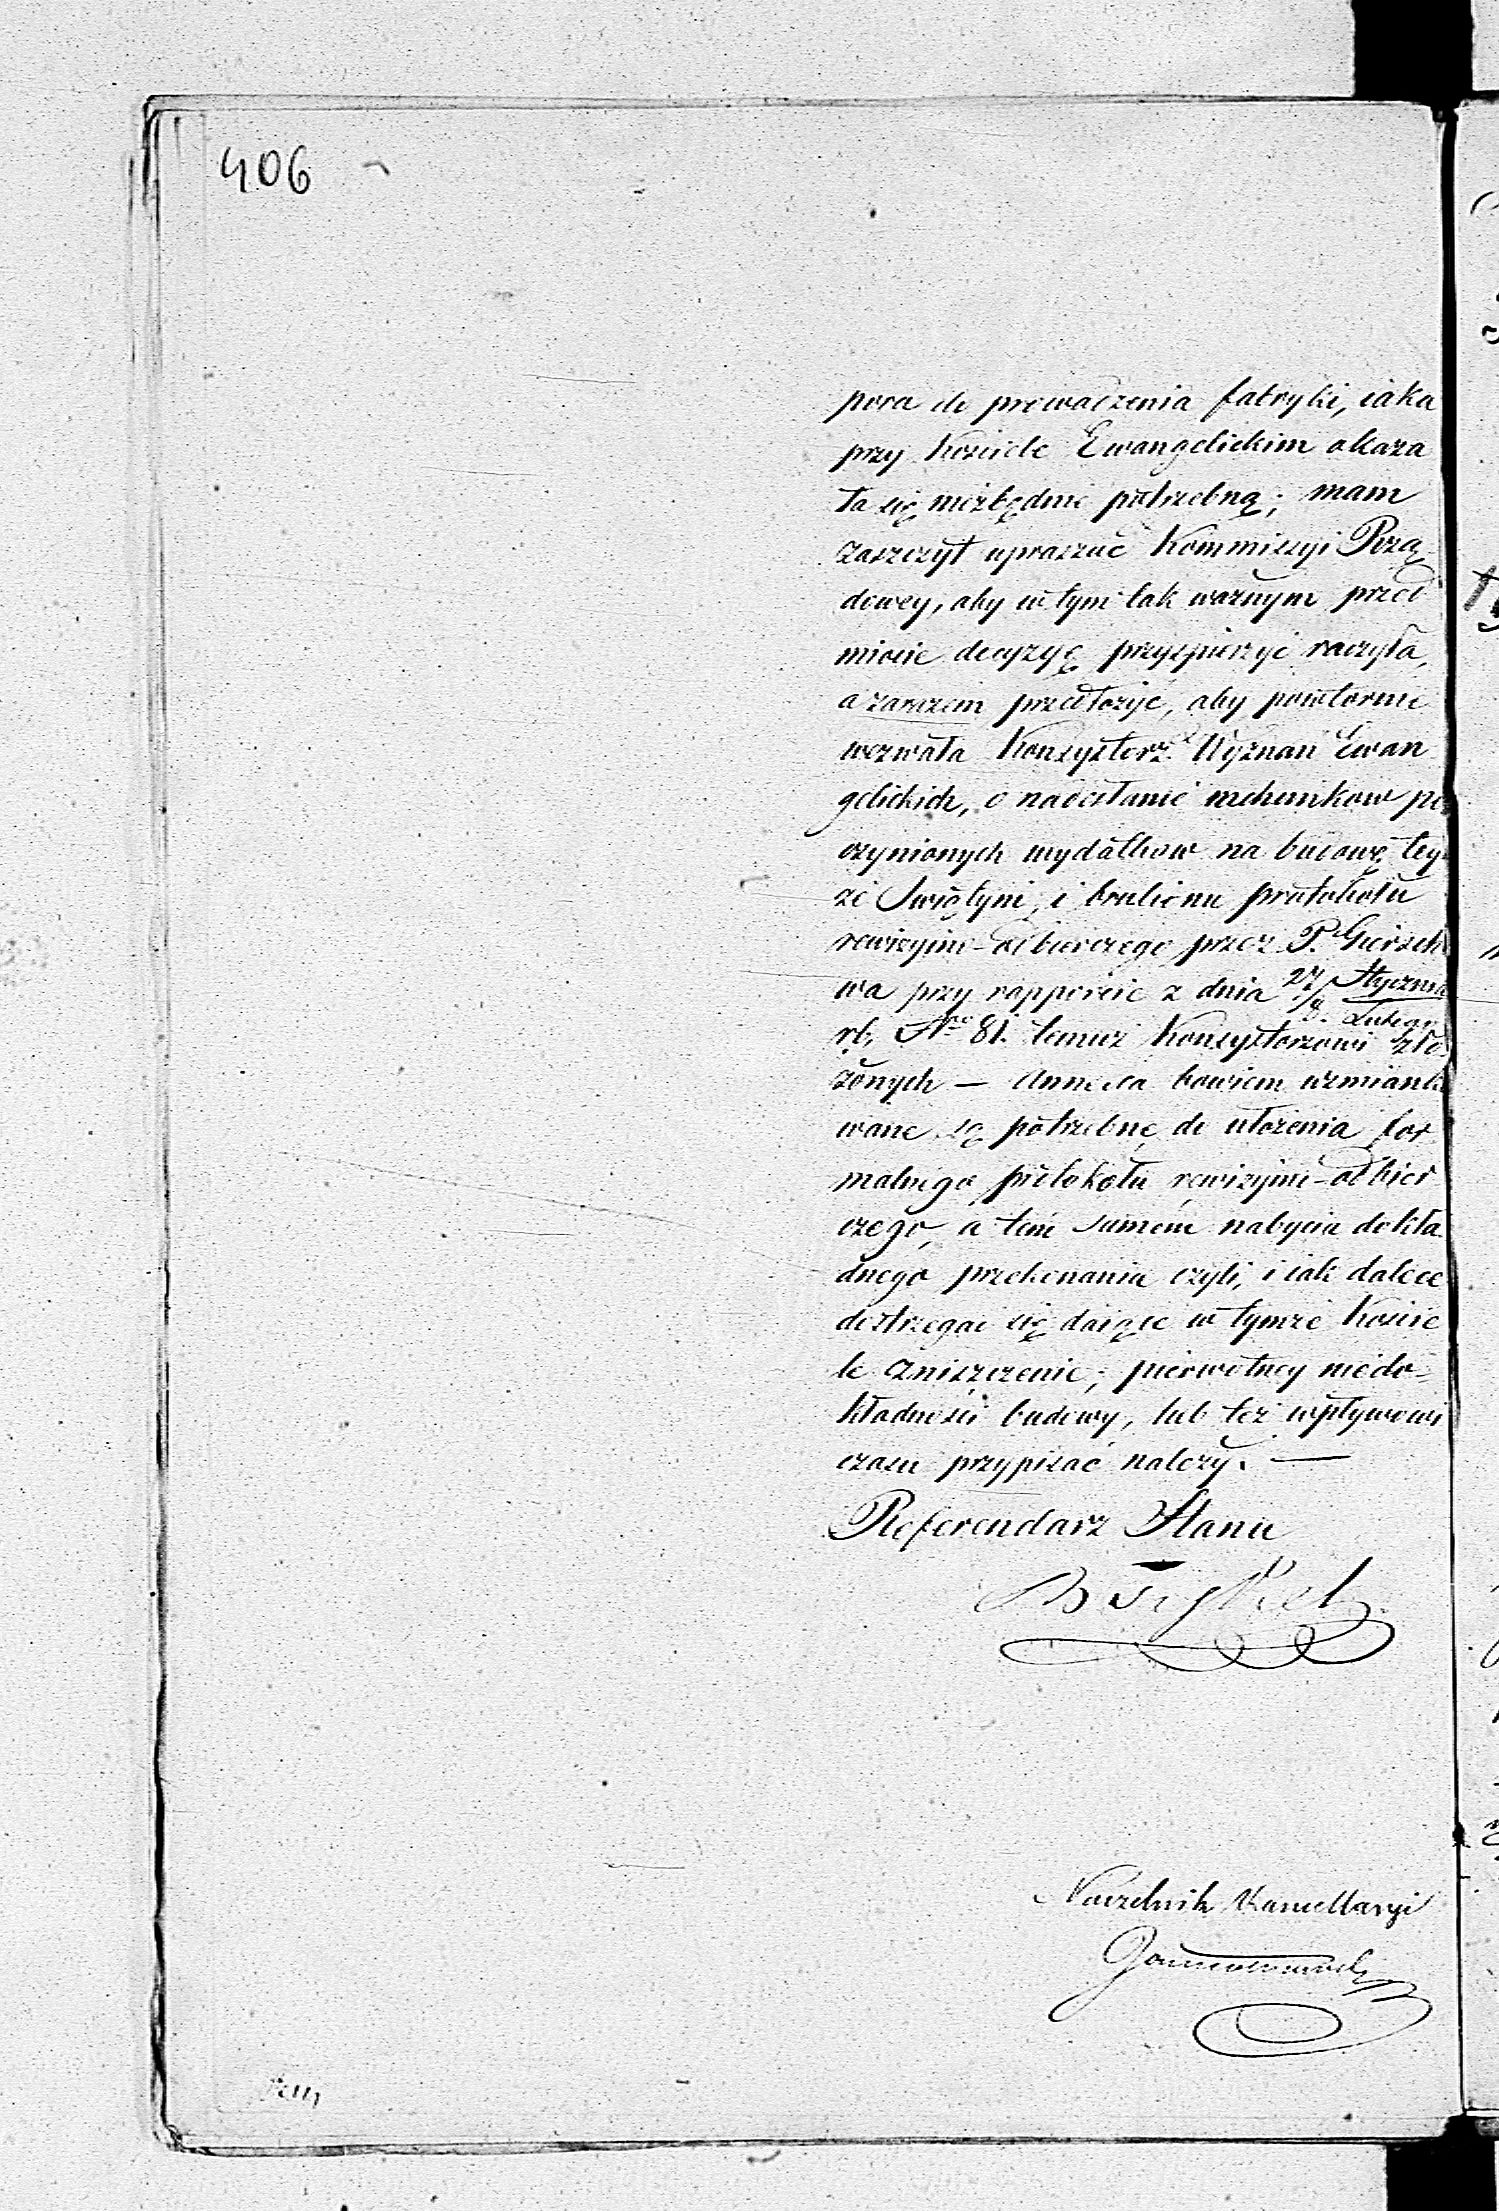 406
pora do prowadzenia fabryki, iaka
przy Kosciele Ewangelickim okaza
ła się niezbędnie potrzebną; mam
zaszczyt upraszać Kommissyi Rzą
dowey, aby w tym tak ważnym przed
miocie decyzyę przyspieszyć raczyła,
a zarazem przełożyć, aby powtornie
wezwała Konsystorz Wyznań Ewan
gelickich, o nadesłanie rachunkow po
czynionych wydatkow na budowę tey
że Swiątyni, i brulionu protokołu
rewizyjno-odbiorczego przez P. Giersch
wa przy rapporcie z dnia 27/8 Stycznia/Lutego
rb, No 81. temuż Konsystorzowi zło
żonych — Annexa bowiem wzmianko
wane są potrzebne do ułożenia for
malnego protokołu rewizyjno-odbior
czego, a tem samem nabycia dokła
dnego przekonania czyli, i iak dalece
dostrzegać się daiące w tymże Koscie
le zniszczenie, pierwotney niedo-
kładności budowy, lub też wpływowi
czasu przypisać należy. —
Referendarz Stanu
Naczelnik Kancellaryi